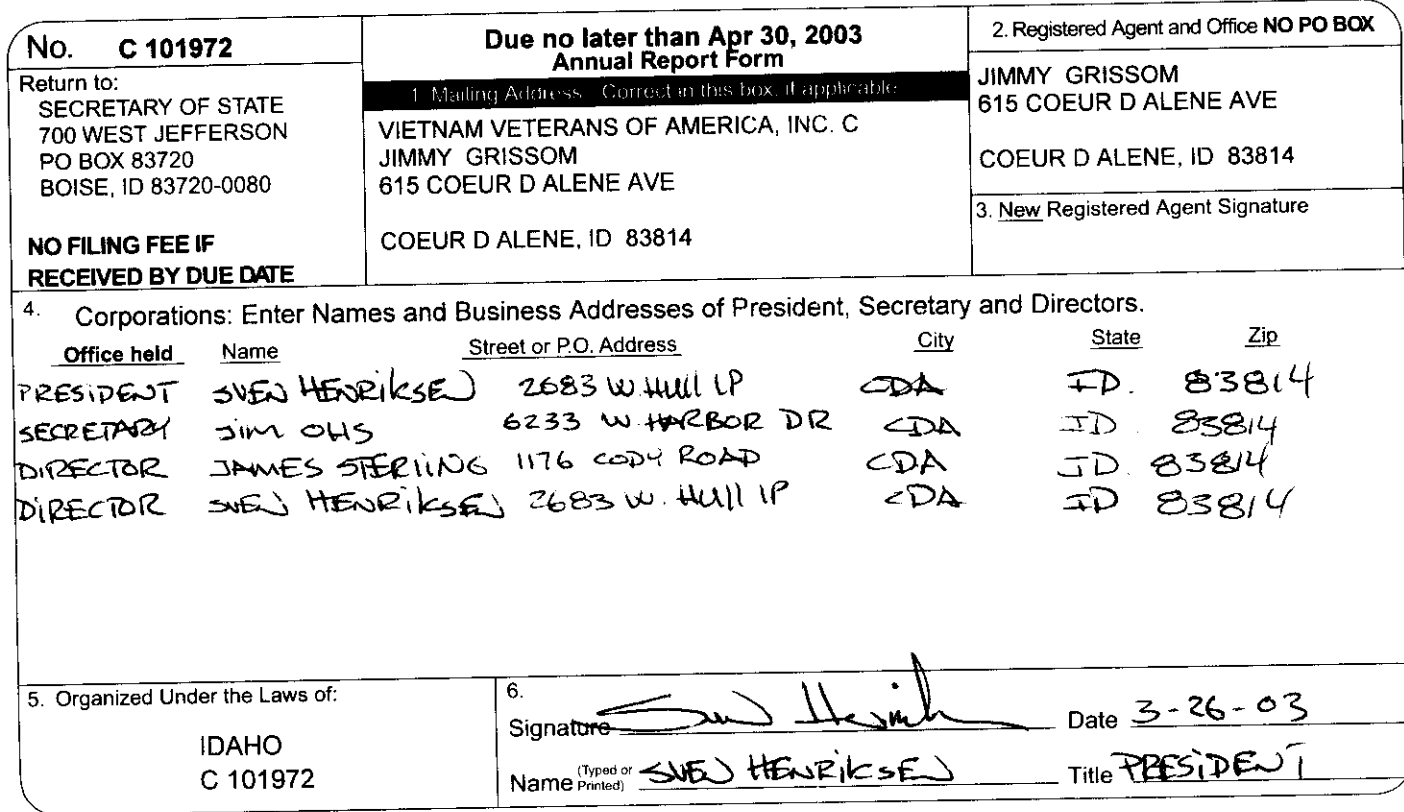 No. C 101972
Return to:
SECRETARY OF STATE
700 WEST JEFFERSON
PO BOX 83720
BOISE, ID 83720-0080
NO FILING FEE IF
RECEIVED BY DUE DATE
Due no later than Apr 30, 2003
Annual Report Form
1. Mailing Address: Correct in this box, if applicable
VIETNAM VETERANS OF AMERICA, INC. C
JIMMY GRISSOM
615 COEUR D ALENE AVE
COEUR D ALENE, ID 83814
2. Registered Agent and Office NO PO BOX
JIMMY GRISSOM
615 COEUR D ALENE AVE
COEUR D ALENE, ID 83814
3. New Registered Agent Signature
4. Corporations: Enter Names and Business Addresses of President, Secretary and Directors.
Office held Name Street or P.O. Address City State Zip
PRESIDENT SVEN HENRIKSEN 2683 W. Hull LP CDA ID. 83814
SECRETARY JIM OHS 6233 W HARBOR DR CDA ID 83814
DIRECTOR JAMES STERLING 1176 CODY ROAD CDA ID. 83814
DIRECTOR SVEN HENRIKSEN 2683 W. Hull LP CDA ID 83814
5. Organized Under the Laws of:
IDAHO
C 101972
6.
Signature Date 3-26-03
Name (Typed or Printed) SVEN HENRIKSEN Title PRESIDENT